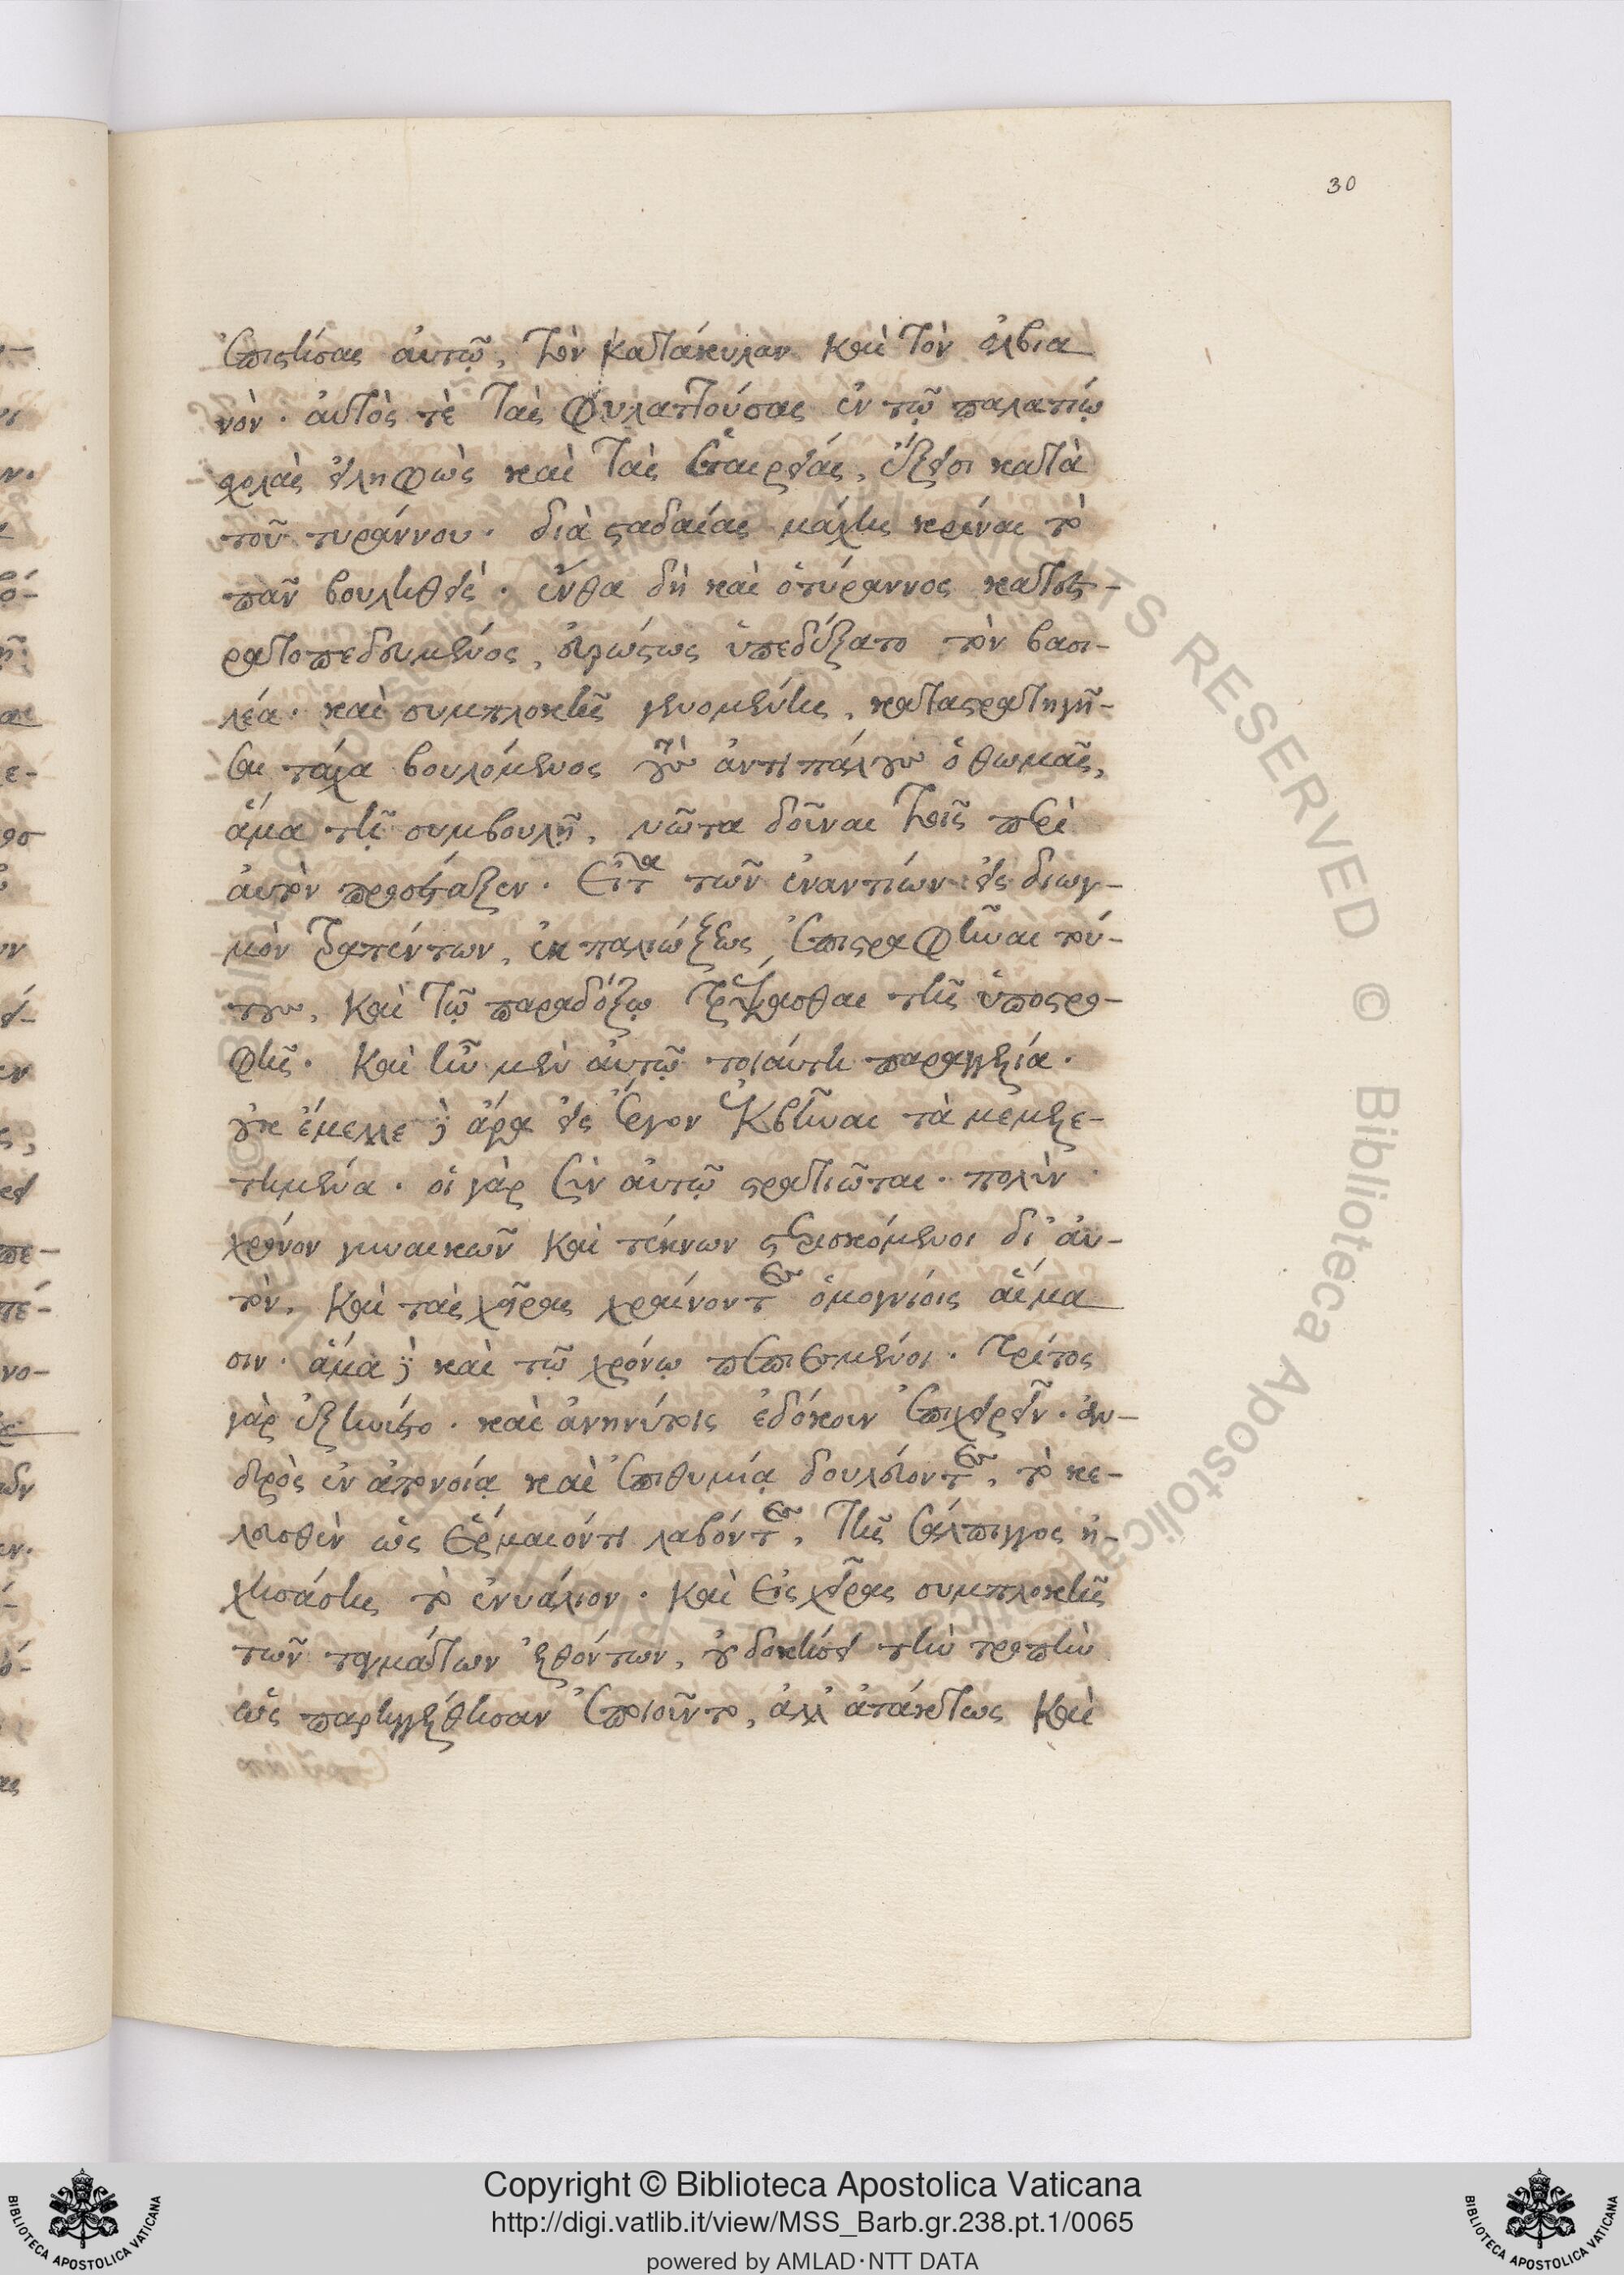 30
ἐπιστήσας αὐτῷ, τὸν κατάκυλαν καὶ τὸν ὀλβια
νὸν. αὐτὸς τὲ τὰς φυλαττούσας ἐν τῷ παλατίῳ
σχολὰς εἰληφὼς καὶ τὰς ἑταιρείας, ἔξεισι κατὰ
τοῦ τυράννου. διὰ σταδαίας μάχης κρίναι τὸ
πᾶν βουληθείς. ἔνθα δὴ καὶ ὁ τύραννος κατεστ-
ρατοπεδευμένος, εὐρώστως ὑπεδέξατο τὸν βασι-
λέα. καὶ συμπλοκῆς γενομένης, καταστρατηγῆ-
σαι τάχα βουλόμενος τοὺς ἀντιπάλους ὁ θωμᾶς,
ἅμα τῇ συμβουλῇ, νῶτα δοῦναι τοῖς περὶ
αὐτὸν προσέταξεν. εἶτα τῶν ἐναντίων εἰς διωγ-
μὸν τραπέντων, ἐκ παλιώξεως ἐπιστραφῆναι τού-
τους, καὶ τῷ παραδόξῳ τρέψασθαι τῆς ὑποστρο-
φῆς. καὶ ἦν μὲν αὐτῷ τοιαύτη παραγγελία.
οὐκ ἔμελλε δὲ ἄρα εἰς ἔργον ἐκβῆναι τὰ μεμελε-
τημένα. οἱ γὰρ σὺν αὐτῷ στρατιῶται. πολὺν
χρόνον γυναικῶν καὶ τέκνων στερισκόμενοι δι' αὐ-
τὸν, καὶ τὰς χεῖρας χραίνοντες ὁμογνίοις αἵμα
σιν. ἅμα δὲ καὶ τῷ χρόνῳ πεπιεσμένοι. τρίτος
γὰρ ἐξήνυστο. καὶ ἀνηνύτοις ἐδόκουν ἐπιχειρεῖν. ἀν-
δρὸς ἐν ἀπονοίᾳ καὶ ἐπιθυμίᾳ δουλεύοντες, τὸ κε-
λευσθὲν ὡς ἕρμαιόν τι λαβόντες, τῆς σάλπιγγος ἠ-
χησάσης τὸ ἐνυάλιον. καὶ εἰς χεῖρας συμπλοκῆς
τῶν ταγμάτων ἐλθόντων, οὐ δοκήσει τὴν τροπὴν
ὡς παρηγγέλθησαν ἐποιοῦντο, ἀλλ' ἀτάκτως καὶ
Copyright © Biblioteca Apostolica Vaticana
http://digi.vatlib.it/view/MSS_Barb.gr.238.pt.1/0065
powered by AMLAD·NTT DATA